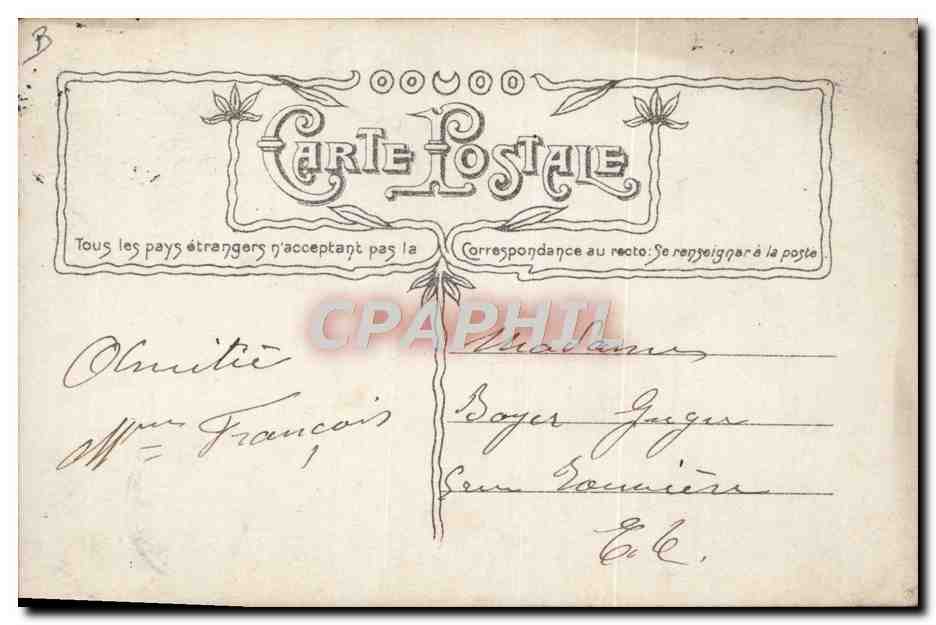 B
CARTE POSTALE
Tous les pays étrangers n'acceptant pas la Correspondance au recto: Se renseigner à la poste
CPAPHIL
Amitié
François
Madame
Boyer